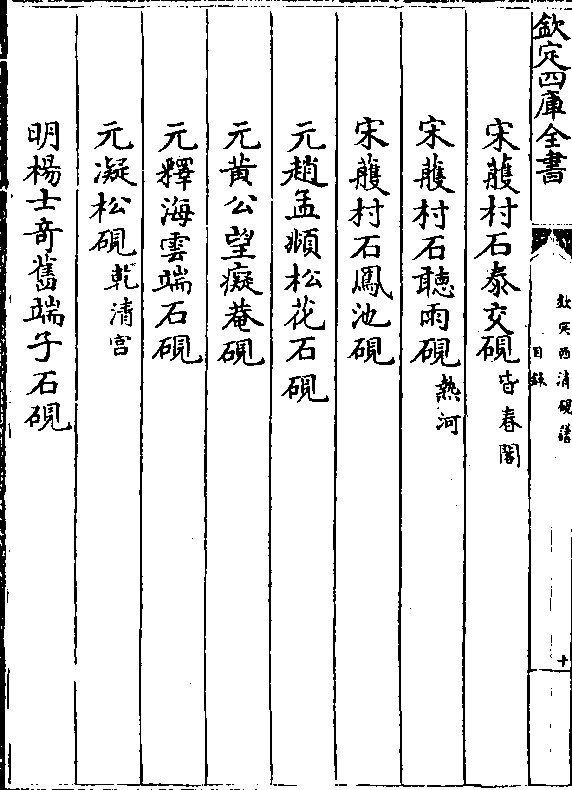 欽定四庫全書
欽定西清硯譜
目錄
十
宋艧村石泰交硯皆春閣
宋艧村石聽雨硯熱河
宋艧村石鳳池硯
元趙孟頫松花石硯
元黃公望癡菴硯
元釋海雲端石硯
元凝松硯乾清宮
明楊士奇舊端子石硯